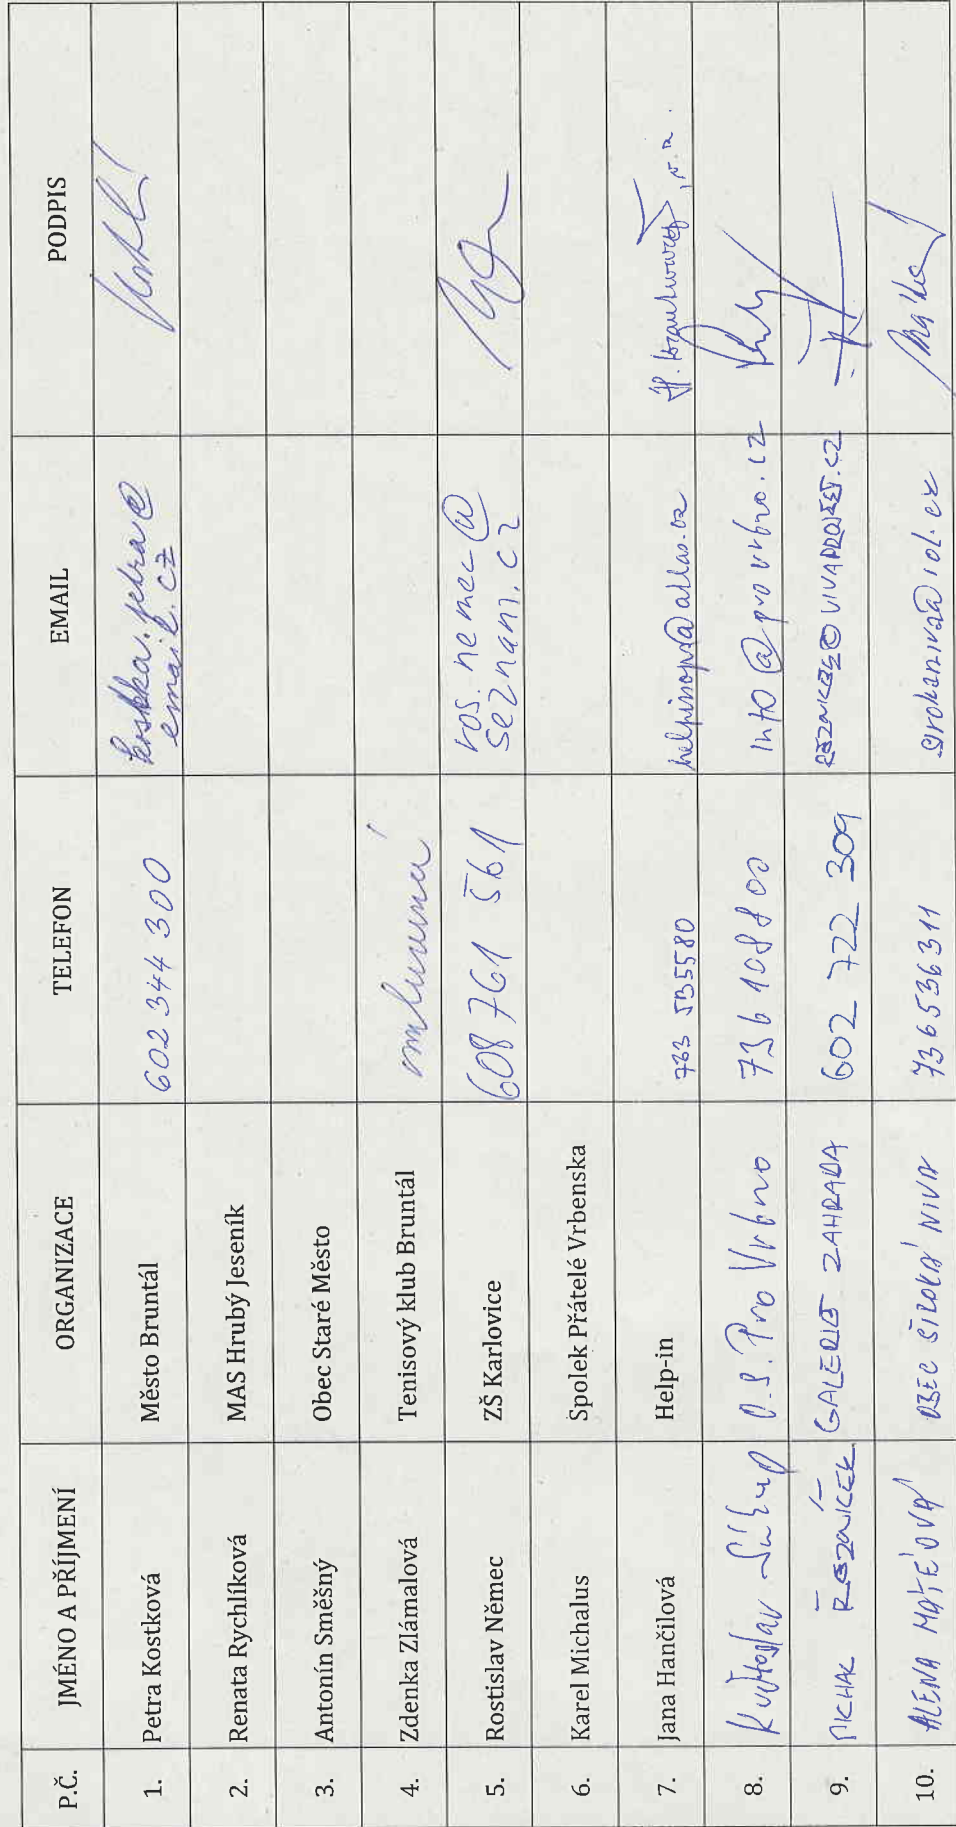 P.Č. JMÉNO A PŘÍJMENÍ ORGANIZACE TELEFON EMAIL PODPIS
1. Petra Kostková Město Bruntál 602 344 300 kostkova.petra@
email.cz
2. Renata Rychlíková MAS Hrubý Jeseník
3. Antonín Směšný Obec Staré Město
4. Zdenka Zlámalová Tenisový klub Bruntál omluvená
5. Rostislav Němec ZŠ Karlovice 608 761 561 ros.nemec@
seznam.cz
6. Karel Michalus Spolek Přátelé Vrbenska
7. Jana Hančilová Help-in 733 535580 helpinops@atlas.cz
8. O.S. Pro Vrbno 736 108 800 info@provrbno.cz
9. MICHAL ŘEZNÍČEK GALERIE ZAHRADA 602 722 309 REZNICEK@VIVAPROJEKT.CZ
10. ALENA MATĚJOVÁ OBEC ŠIROKÁ NIVA 736536311